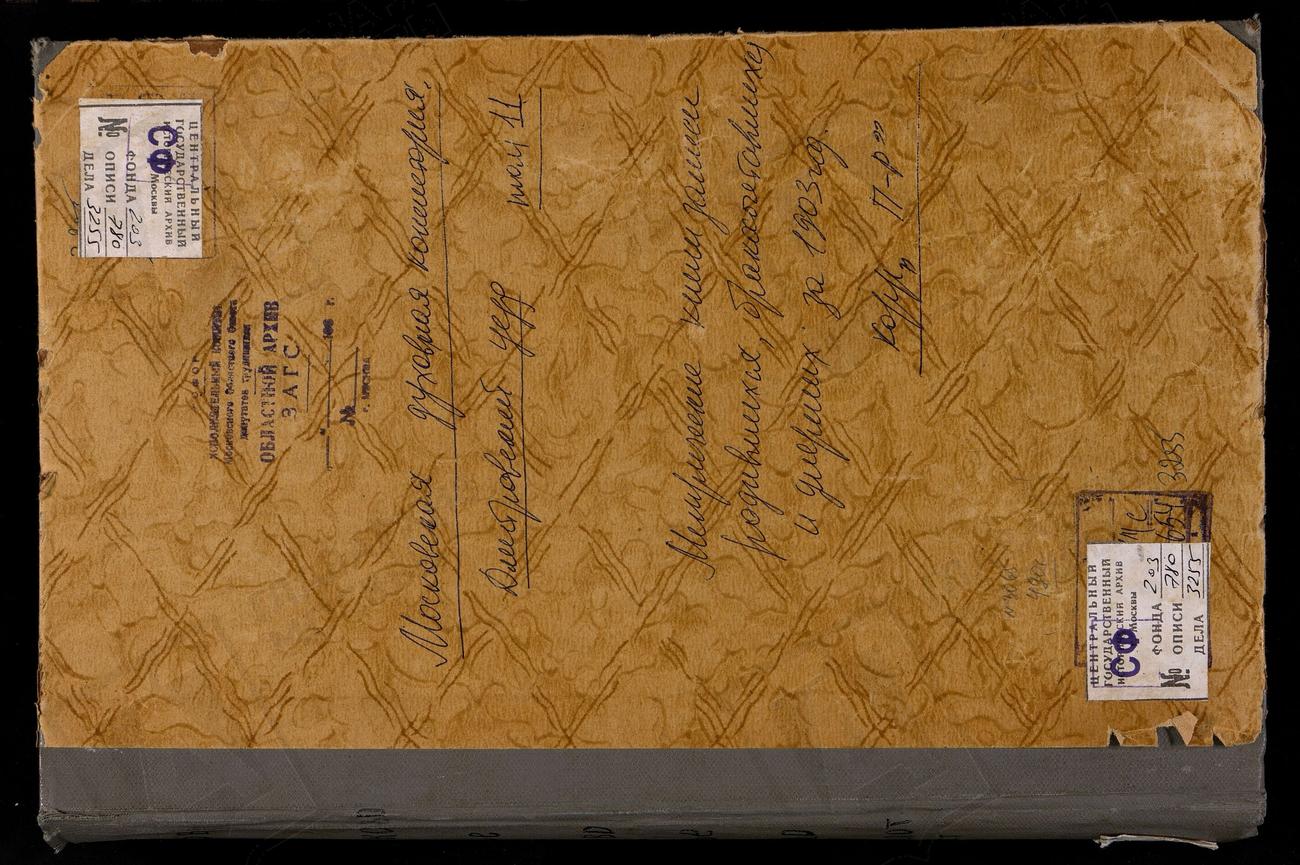 ЦЕНТРАЛЬНЫЙ
ГОСУДАРСТВЕННЫЙ
ИСТОРИЧЕСКИЙ АРХИВ
г. Москвы
СФ
ФОНДА 203
№ ОПИСИ 780
ДЕЛА 3255
ИСПОЛНИТЕЛЬНЫЙ КОМИТЕТ
Московского Областного Совета
депутатов трудящихся
ОБЛАСТНОЙ АРХИВ
ЗАГС
196 г.
№
г. Москва
Московская духовная консистория.
Дмитровский уезд том 11
Метрические книги записи
родившихся, бракосочетавшихся
и умерших за 1903 год.
Корр „П-Р"
3255
ЦЕНТРАЛЬНЫЙ
ГОСУДАРСТВЕННЫЙ
ИСТОРИЧЕСКИЙ АРХИВ
г. Москвы
СФ
ФОНДА 203
№ ОПИСИ 780
ДЕЛА 3255